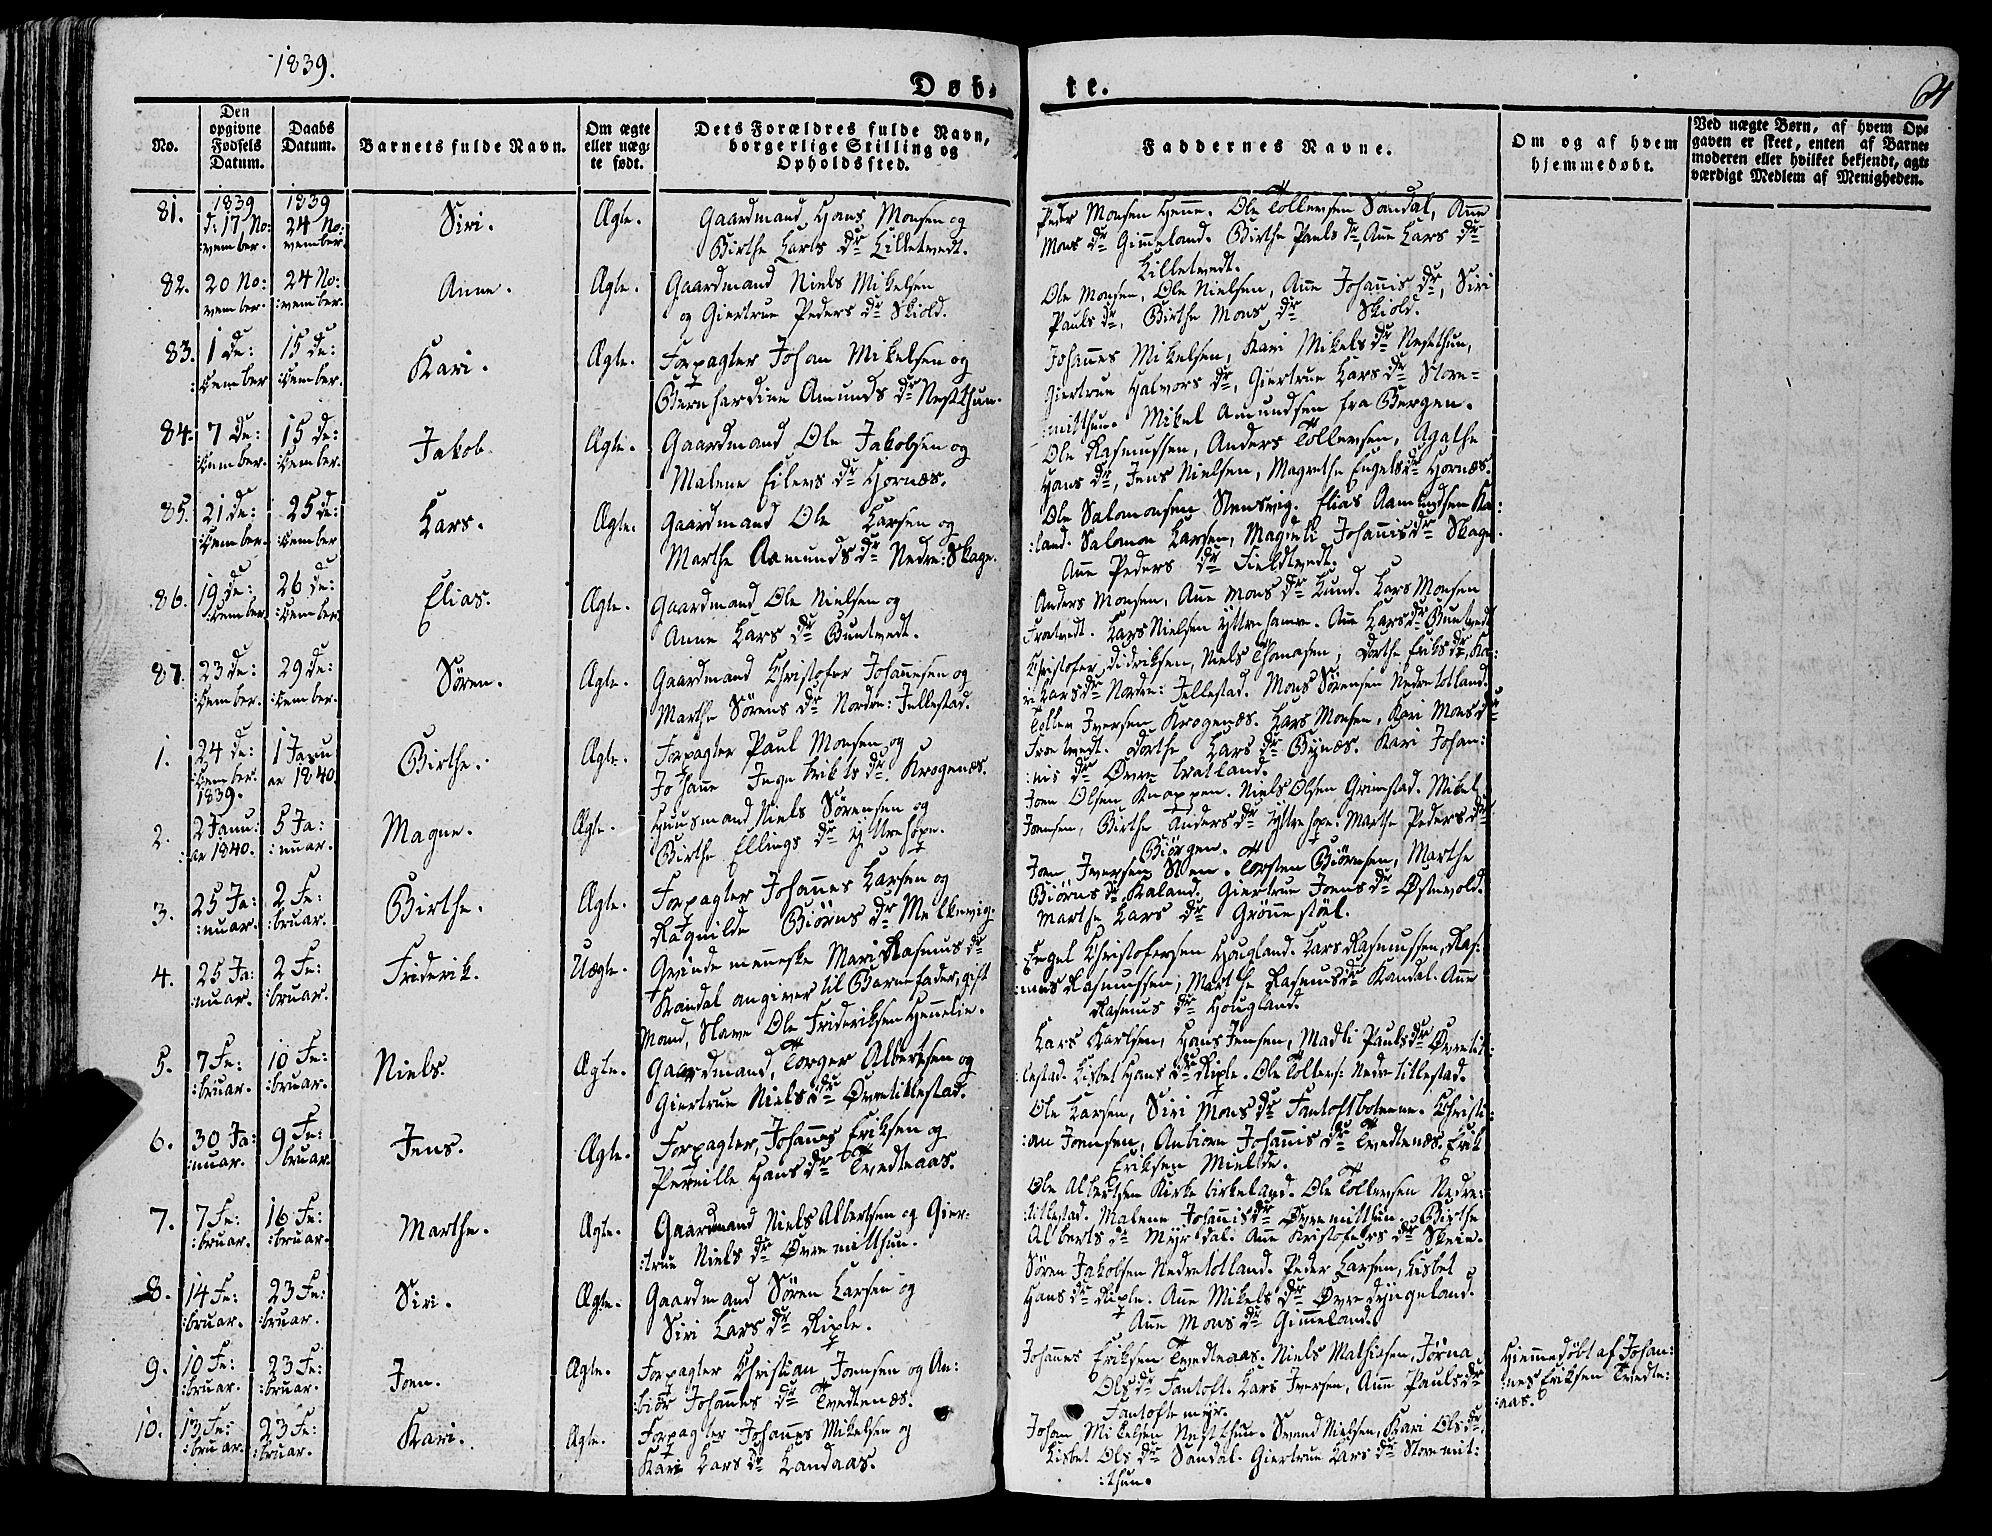 1839.
Døb:
te.
No.
Den
opgivne
Fødsels
Datum.
Daabs
Datum.
Barnets fulde Navn.
Om ægte
eller uæg-
te født.
Dets Forældres fulde Navn,
borgerlige Stilling og
Opholdssted.
Faddernes Navne.
Om og af hvem
hjemmedøbt.
Ved uægte Børn, af hvem Op-
gaven er skeet, enten af Barne-
moderen eller hvilket bekjendt, agt-
værdigt Medlem af Menigheden.
81.
1839
d: 17, No:
:vember.
1839
24 No:
vember.
Siri.
Ægte.
Gaardmand Hans Monsen og
Birthe Lars Dr Lilletvedt.
Peder Monsen Henne. Ole Tollevsen Sandal, Anne
Mons dr Gimmeland. Birthe Pauls dr, Anne Lars dr
Lilletvedt.
82.
20 No:
vember.
24 No:
:vember.
Anne.
Ægte.
Gaardmand Niels Mikelsen
og Giertrue Peders dr Skiold.
Ole Monsen, Ole Nielsen, Anne Johannis dr, Siri
Pauls dr, Birthe Mons dr Skiold.
83.
1 De:
:cember
15 De:
:cember.
Kari.
Ægte.
Forpagter Johan Mikelsen og
Bernhardine Amunds dr Nestthun.
Johannes Mikelsen, Kari Mikels dr Nestthun,
Giertrue Halvors dr, Giertrue Lars dr Store-
:mitthun. Mikel Amundsen fra Bergen.
84.
7 De:
:cember.
15 De:
:cember.
Jakob.
Ægte.
Gaardmand Ole Jakobsen og
Malene Eilers dr Hjornæs.
Ole Rasmussen, Anders Tollevsen, Agathe
Hans dr, Jens Nielsen, Magrethe Engels dr Hjornæs.
85.
21 De:
:cember.
25 De:
:cember
Lars.
Ægte.
Gaardmand Ole Larsen og
Marthe Aamunds dr Nedre: Skage.
Ole Salomonsen Stensvig. Elias Aamundsen Ka:
:land. Salomon Larsen, Magdeli Johannis dr Skage.
Anne Peders dr Fieldtvedt.
86.
19 De:
:cember
26 De:
:cember.
Elias.
Ægte.
Gaardmand Ole Nielsen og
Anne Lars dr Buntvedt.
Anders Monsen, Anne Mons dr Lund. Lars Monsen
Frotvedt. Lars Nielsen Yttre . Anne Lars dr Buntvedt
87.
23 De:
:cember.
29 De:
:cember.
Søren.
Ægte.
Gaardmand Christofer Johannesen og
Marthe Sørens dr Nordre: Jellestad.
Christofer Didriksen, Niels Thomasen, Dorthe Eriks dr, Ka:
ri Lars dr Nordre: Jellestad. Mons Sørensen Nedre totland.
1.
24 De:
:cember.
1839.
1 Janu
ar 1840
Birthe.
Ægte.
Forpagter Paul Monsen og
Johanne Ingebrikts dr. Krogenæs.
Tollev Iversen Krogenæs. Lars Monsen, Kari Mons dr
Frotvedt. Dorthe Lars dr Bynæs. Kari Johan:
:nis dr Øvre bratland.
2.
2 Janu:
:ar 1840.
5 Ja:
:nuar.
Magne.
Ægte.
Huusmand Niels Sørensen og
Birthe Ellings dr Yttrehope.
Joen Olsen Knappen. Niels Olsen Grimstad. Mikel
Joensen, Birthe Anders dr Yttrehope. Marthe Peders dr
Biørgen.
3.
25 Ja:
:nuar.
2 Fe:
:bruar.
Birthe.
Ægte.
Forpagter Johannes Larsen og
Ragnilde Biørns dr Melkevig.
Joen Iversen Steen. Torsten Biørnsen, Marthe
Biørns dr Kaland. Giertrue Joens dr Østevold.
Marthe Lars dr Grønnestøel.
4.
25 Ja:
:nuar.
2 Fe:
:bruar.
Friderik.
Uægte.
Qvinde menneske Mari Rasmus dr
Kandal angiver til Barnefader, gift
Mand, Slave Ole Frideriksen Hennelie.
Engel Christofersen Hougland. Lars Rasmussen, Ras:
:mus Rasmussen, Marthe Rasmus dr Kandal. Anne
Rasmus dr Hougland.
5.
7 Fe:
:bruar.
10 Fe:
:bruar.
Niels.
Ægte.
Gaardmand, Torger Albertsen og
Giertrue Niels dr Øvretitlestad.
Lars Larsen, Hans Jensen, Madli Pauls dr Øvretit:
:lestad. Lisbet Hans dr Riple. Ole Tollevs: Nedre titlestad.
6.
30 Ja:
:nuar.
9 Fe:
:bruar.
Jens.
Ægte.
Forpagter, Johannes Eriksen og
Pernille Hans dr Tvedtnaas.
Ole Larsen, Siri Mons dr Fantoftbotnene. Christi:
:an Joensen, Anbiørn Johannis dr Tvedtenæs. Erik
Eriksen Mielde.
7.
7 Fe:
:bruar.
16 Fe:
:bruar.
Marthe.
Ægte.
Gaardmand Niels Albertsen og Gier:
:true Niels dr Øvre mitthun.
Ole Albertsen Kirke birkeland. Ole Tollevsen Nedre:
:titlestad. Malene Johannis dr Øvre mitthun. Birthe
Alberts dr Myrdal. Anne Kristofers dr Skeie.
8.
14 Fe:
:bruar.
23 Fe:
:bruar.
Siri.
Ægte.
Gaardmand Søren Larsen og
Siri Lars dr Riple.
Søren Jakobsen Nedre totland. Peder Larsen, Lisbet
Hans dr Riple. Anne Mikels dr Øvre dyngeland.
Anne Mons dr Gimmeland.
9.
10 Fe:
:bruar.
23 Fe:
:bruar.
Joen.
Ægte.
Forpagter Christian Joensen og An:
:biør Johannes dr Tvedtenæs.
Johannes Eriksen Tvedteaas. Niels Mathiesen, Jørna
Ols dr Fantoft. Lars Iversen, Anne Pauls dr
Fantoftemyr.
Hiemmedøbt af Johan:
:nes Eriksen Tvedte:
:aas.
10.
13 Fe:
:bruar.
23 Fe:
:bruar.
Kari.
Ægte.
Forpagter Johannes Mikelsen og
Kari Lars dr Landaas.
Johan Mikelsen Nestthun. Svend Nielsen, Kari Ols dr,
Lisbet Ols dr Sandal. Giertrue Lars dr Store mit:
:thun.